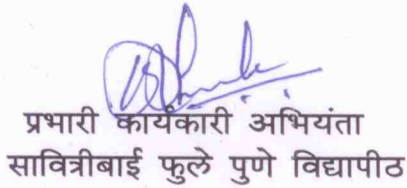 प्रभारी कार्यकारी अभियंता
सावित्रीबाई फुले पुणे विद्यापीठ